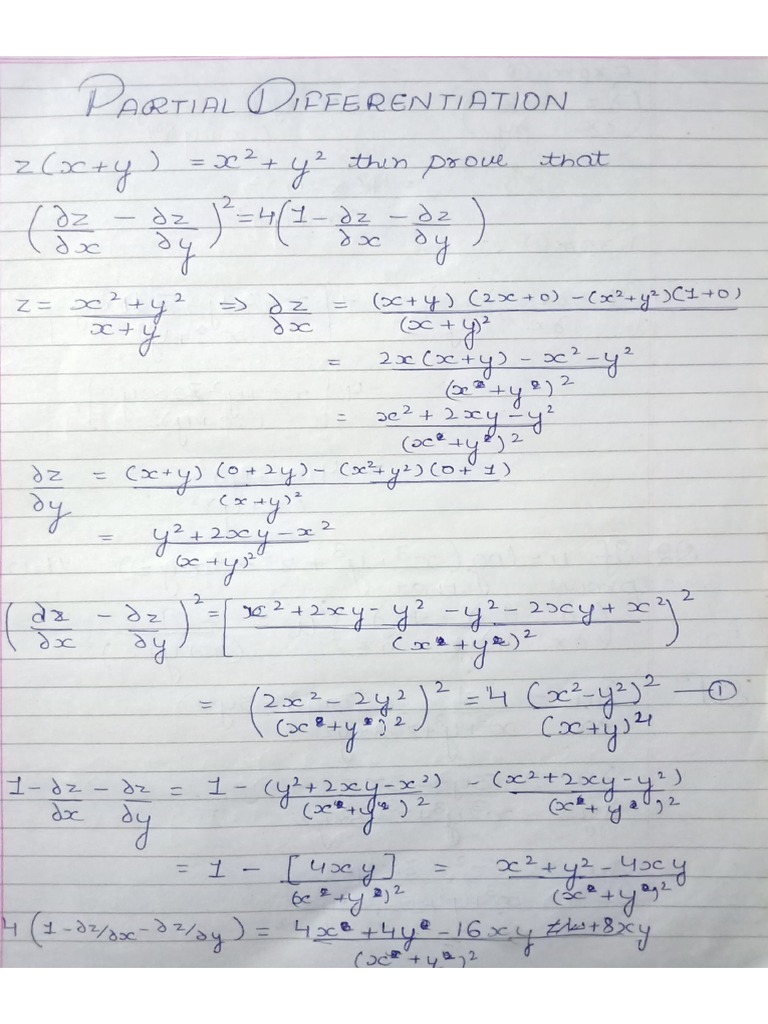 PARTIAL DIFFERENTIATION
z(x+y) = x² + y² then prove that
(∂z/∂x - ∂z/∂y)² = 4(1 - ∂z/∂x - ∂z/∂y)
z = x²+y²/x+y ⇒ ∂z/∂x = (x+y)(2x+0) - (x²+y²)(1+0)/(x+y)²
= 2x(x+y) - x² - y²/(x+y)²
= x² + 2xy - y²/(x+y)²
∂z/∂y = (x+y)(0+2y) - (x²+y²)(0+1)/(x+y)²
= y² + 2xy - x²/(x+y)²
(∂z/∂x - ∂z/∂y)² = [x² + 2xy - y² - y² - 2xy + x²/(x+y)²)²
= (2x² - 2y²/(x+y)²)² = 4 (x²-y²)²/(x+y)⁴ — ①
1 - ∂z/∂x - ∂z/∂y = 1 - (y²+2xy-x²)/(x+y)² - (x²+2xy-y²)/(x+y)²
= 1 - [4xy]/(x+y)² = x² + y² - 4xy/(x+y)²
4(1 - ∂z/∂x - ∂z/∂y) = 4x² + 4y² - 16xy + 8xy/(x+y)²